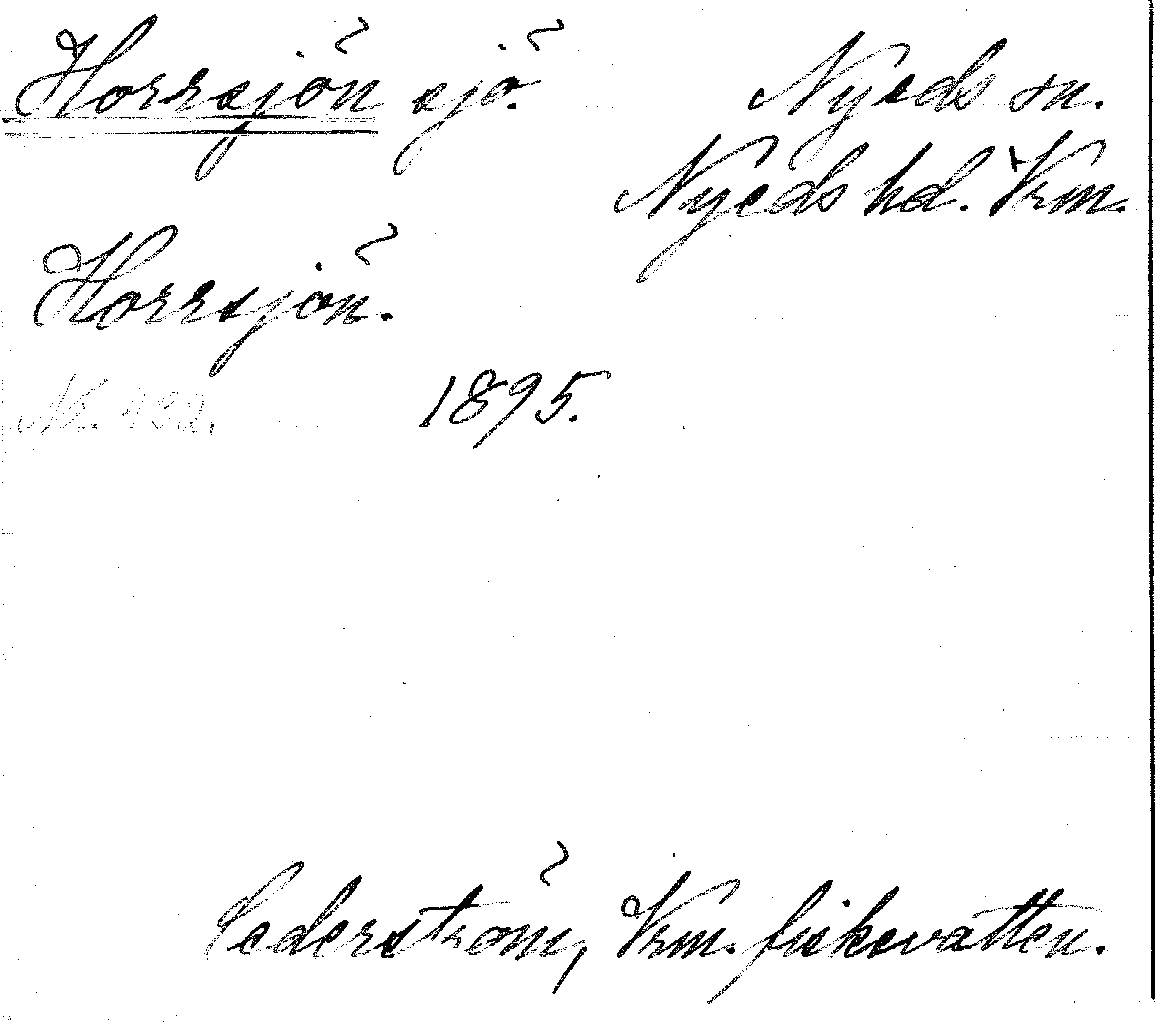 Horrsjön sjö. Nyeds sn.
Nyeds hd. Vrm.
Horrsjön.
Nr. 432. 1895.
Cederström, Vrm. fiskevatten.